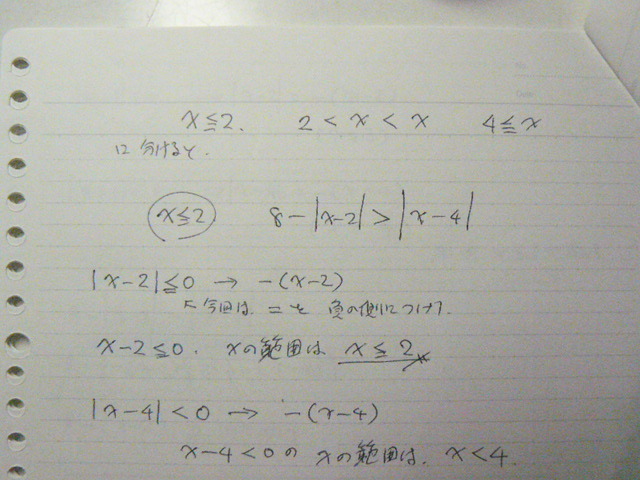 x≦2. 2 < x < x 4≦x
に分けると.
x≦2 8-|x-2|>|x-4|
|x-2|≦0 → -(x-2)
今回は、=を 負の側につけて.
x-2≦0. xの範囲は x≦2
|x-4|<0 → -(x-4)
x-4<0の xの範囲は. x<4.